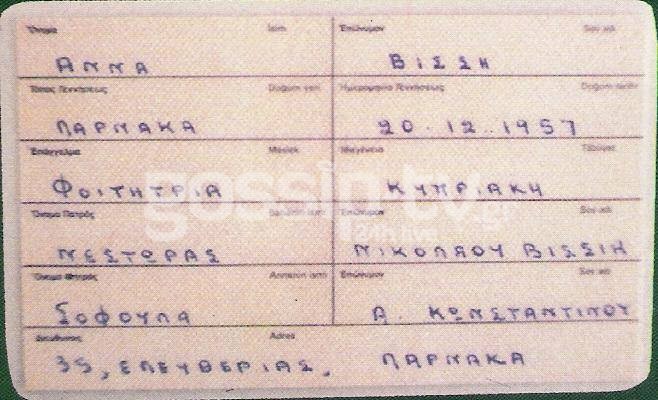 Όνομα Isim Επώνυμον Soy adı
ΑΝΝΑ ΒΙΣΣΗ
Τόπος Γεννήσεως Doğum yeri Ημερομηνία Γεννήσεως Doğum tarihi
ΛΑΡΝΑΚΑ 20.12.1957
Επάγγελμα Meslek Ιθαγένεια
ΦΟΙΤΗΤΡΙΑ ΚΥΠΡΙΑΚΗ
gossip-tv.gr
Όνομα Πατρός Επώνυμον Soy adı
ΝΕΣΤΩΡΑΣ ΝΙΚΟΛΑΟΥ ΒΙΣΣΗ
Όνομα Μητρός Annenin ismi Επώνυμον Soy adı
ΣΟΦΟΥΛΑ Α. ΚΩΝΣΤΑΝΤΙΝΟΥ
Διεύθυνσις Adres
35, ΕΛΕΥΘΕΡΙΑΣ, ΛΑΡΝΑΚΑ